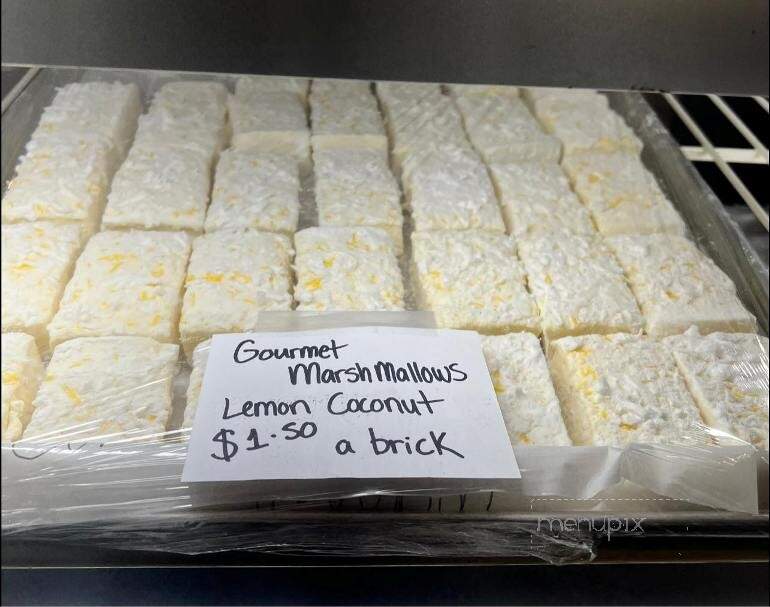 Gourmet
MarshMallows
Lemon Coconut
$1.50 a brick
menupix